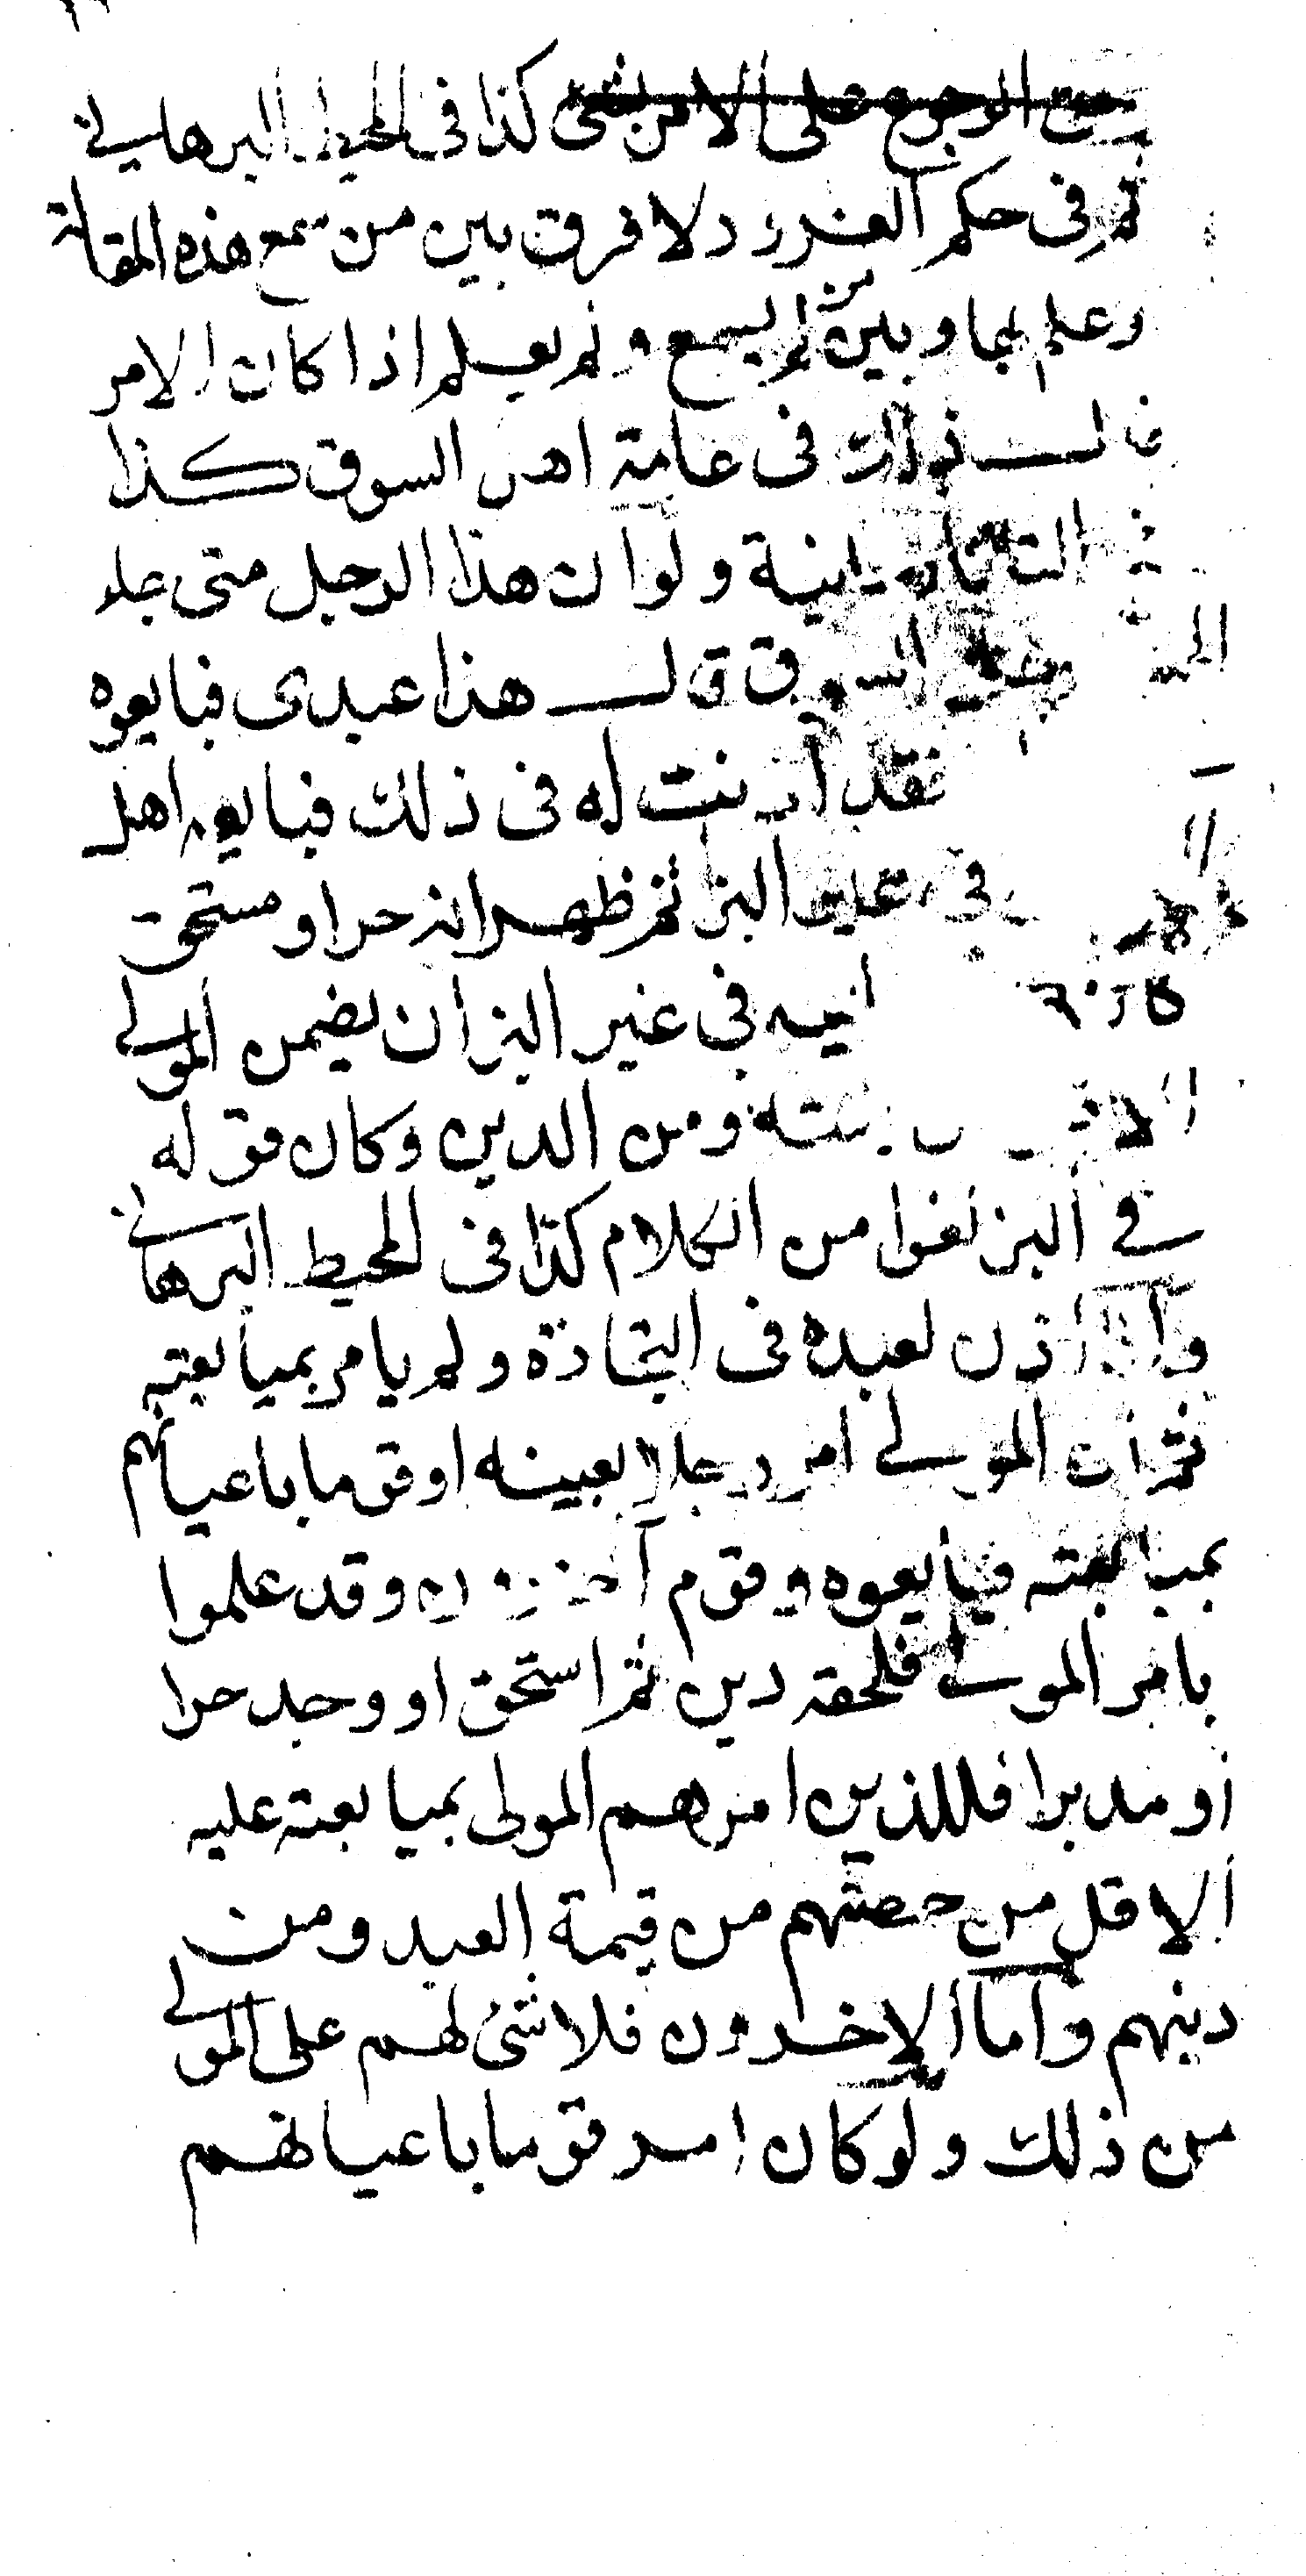 حق الرجوع على الامر بشئ كذا فى المحيط البرهانى
ثم فى حكم الغرور ولا فرق بين من سمع هذه المقالة
وعلم بها وبين من لم يسمع ولم يعلم اذا كان الامر
قال ذلك فى عامة اهل السوق كذا
فى التاتارخانية ولو ان هذا الرجل متى جاء
الى السوق قال هذا عبدى فبايعوه
فقد اذنت له فى ذلك فبايعه اهل
فى غير البز ثم ظهر انه حرا ومستحق
فى غير البز ان يضمن المولى
الاقل ومن الدين وكان قوله
فى البز لغوا من الكلام كذا فى المحيط البرهانى
واذا اذن لعبده فى التجارة ولم يامر بمبايعته
ثم ان المولى امر رجلا بعينه او قوما باعيانهم
بمبايعته فبايعوه وقوم آخرون وقد علموا
بامر المولى فلحقه دين ثم استحق او وجد حرا
او مدبرا فللذين امرهم المولى بمبايعته عليه
الاقل من حصتهم من قيمة العبد ومن
دينهم واما الاخرون فلا شئ لهم على المولى
من ذلك ولو كان امر قوما باعيانهم